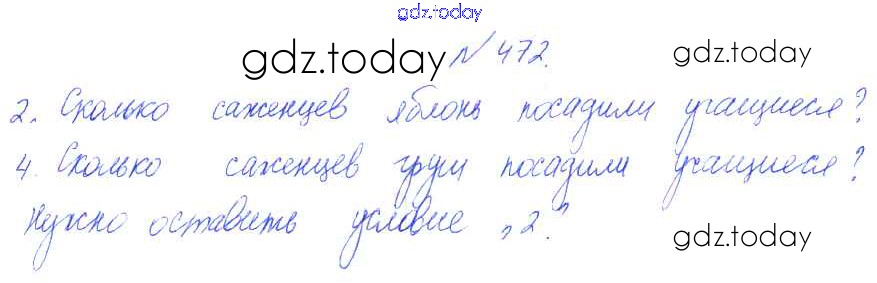 gdz.today
gdz.today № 472. gdz.today
2. Сколько саженцев яблонь посадили учащиеся?
4. Сколько саженцев груш посадили учащиеся?
Нужно оставить условие „2".
gdz.today